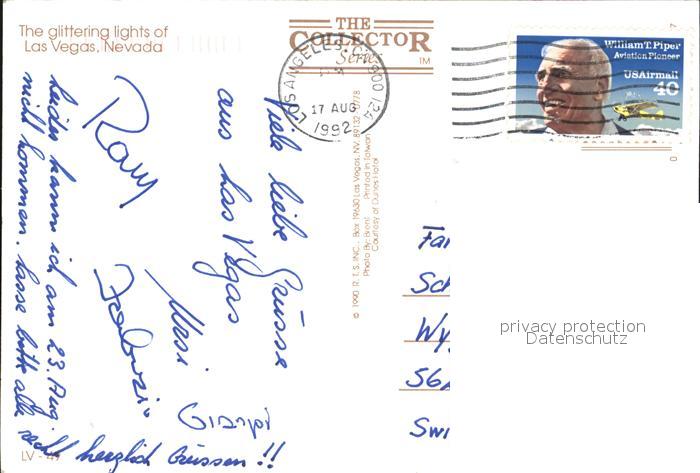 The glittering lights of
Las Vegas, Nevada
THE
COLLECTOR
Series
TM
LOS ANGELES, CA 900
17 AUG
1992
William T. Piper
Aviation Pioneer
USAirmail
40
© 1990 R.T.S. INC., Box 19630 Las Vegas, NV. 89132
Photo By: Brent Printed in Taiwan
Courtesy of Dunes Hotel
Viele liebe Grüsse
aus Las Vegas
Leider kann ich am 23. Aug.
nicht kommen. Lasse bitte alle
recht herzlich Grüssen!!
Fa
Sc
Wy
56
Swi
privacy protection
Datenschutz
LV - 49